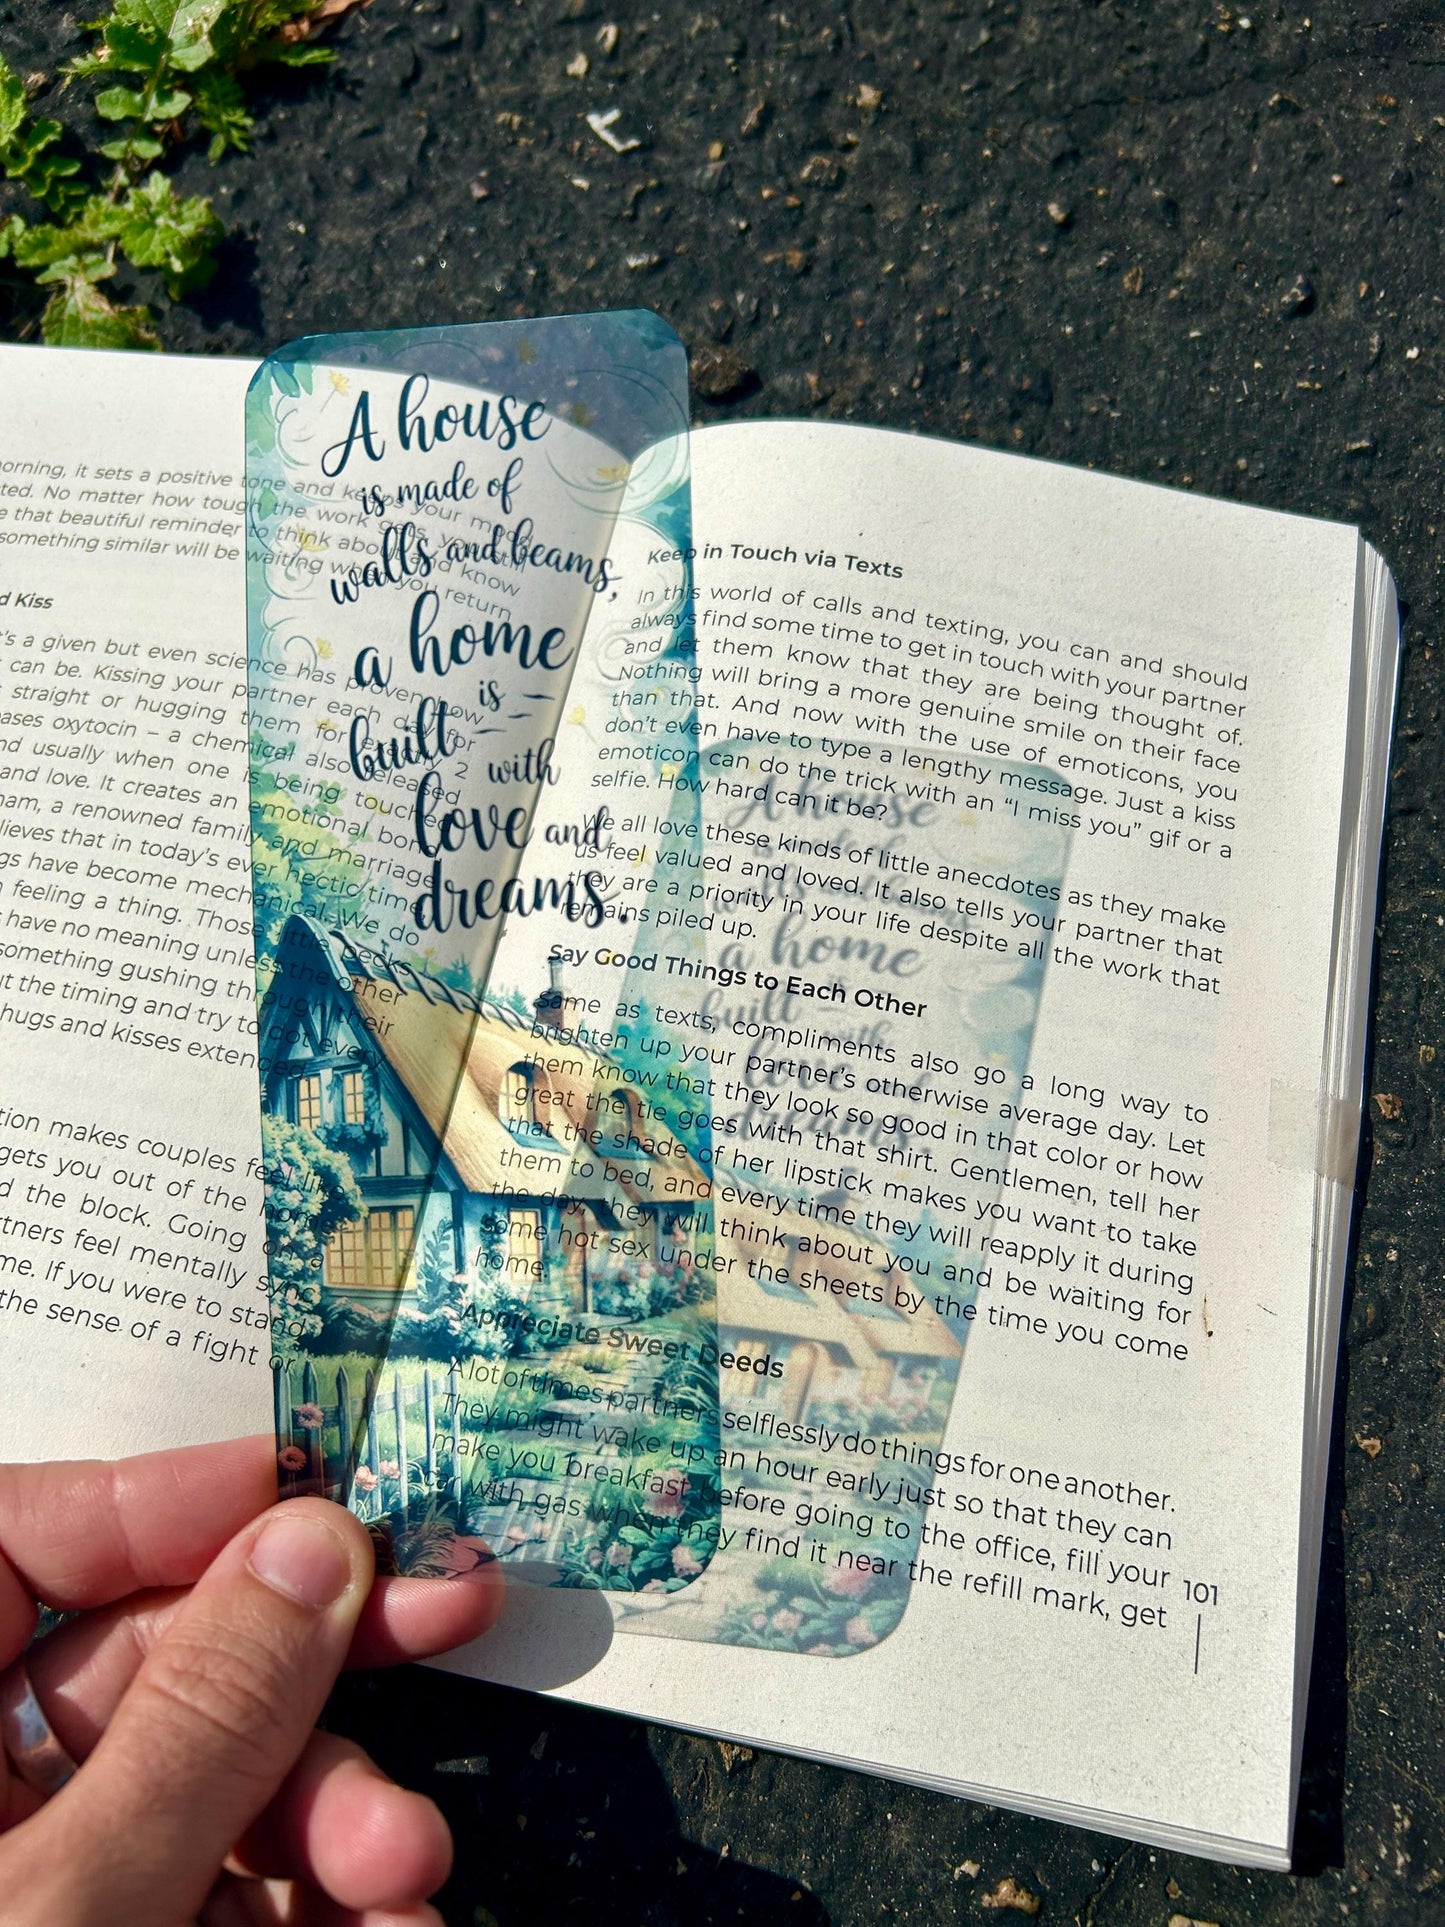 A house
is made of
walls and beams,
a home
is
built
with
love and
dreams.
orning, it sets a positive tone and keeps your mood
ted. No matter how tough the work gets, you still
e that beautiful reminder to think about and know
something similar will be waiting when you return
d Kiss
's a given but even science has proven how
can be. Kissing your partner each day for
straight or hugging them for exactly 2
ases oxytocin – a chemical also released
nd usually when one is being touched
and love. It creates an emotional bond
ham, a renowned family and marriage
lieves that in today's ever hectic time
gs have become mechanical. We do
feeling a thing. Those little pecks
have no meaning unless the other
something gushing through their
ut the timing and try to dot every
hugs and kisses extended
tion makes couples feel like
gets you out of the home
d the block. Going on a
rtners feel mentally sync
me. If you were to stand
the sense of a fight or
Keep in Touch via Texts
In this world of calls and texting, you can and should
always find some time to get in touch with your partner
and let them know that they are being thought of.
Nothing will bring a more genuine smile on their face
than that. And now with the use of emoticons, you
don't even have to type a lengthy message. Just a kiss
emoticon can do the trick with an “I miss you” gif or a
selfie. How hard can it be?
We all love these kinds of little anecdotes as they make
us feel valued and loved. It also tells your partner that
they are a priority in your life despite all the work that
remains piled up.
Say Good Things to Each Other
Same as texts, compliments also go a long way to
brighten up your partner's otherwise average day. Let
them know that they look so good in that color or how
great the tie goes with that shirt. Gentlemen, tell her
that the shade of her lipstick makes you want to take
them to bed, and every time they will reapply it during
the day, they will think about you and be waiting for
some hot sex under the sheets by the time you come
home.
Appreciate Sweet Deeds
A lot of times partners selflessly do things for one another.
They might wake up an hour early just so that they can
make you breakfast before going to the office, fill your
car with gas when they find it near the refill mark, get
101